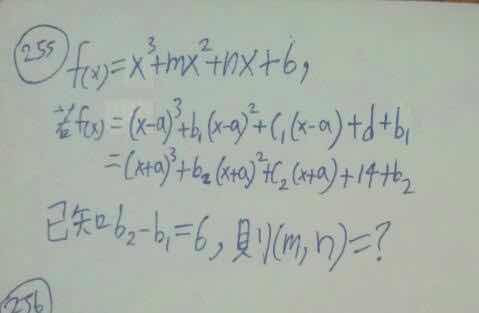 255
f(x)=x³+mx²+nx+6,
若f(x)=(x-a)³+b₁(x-a)²+C₁(x-a)+d+b₁
=(x+a)³+b₂(x+a)²+C₂(x+a)+14+b₂
已知b₂-b₁=6,則(m,n)=?
256